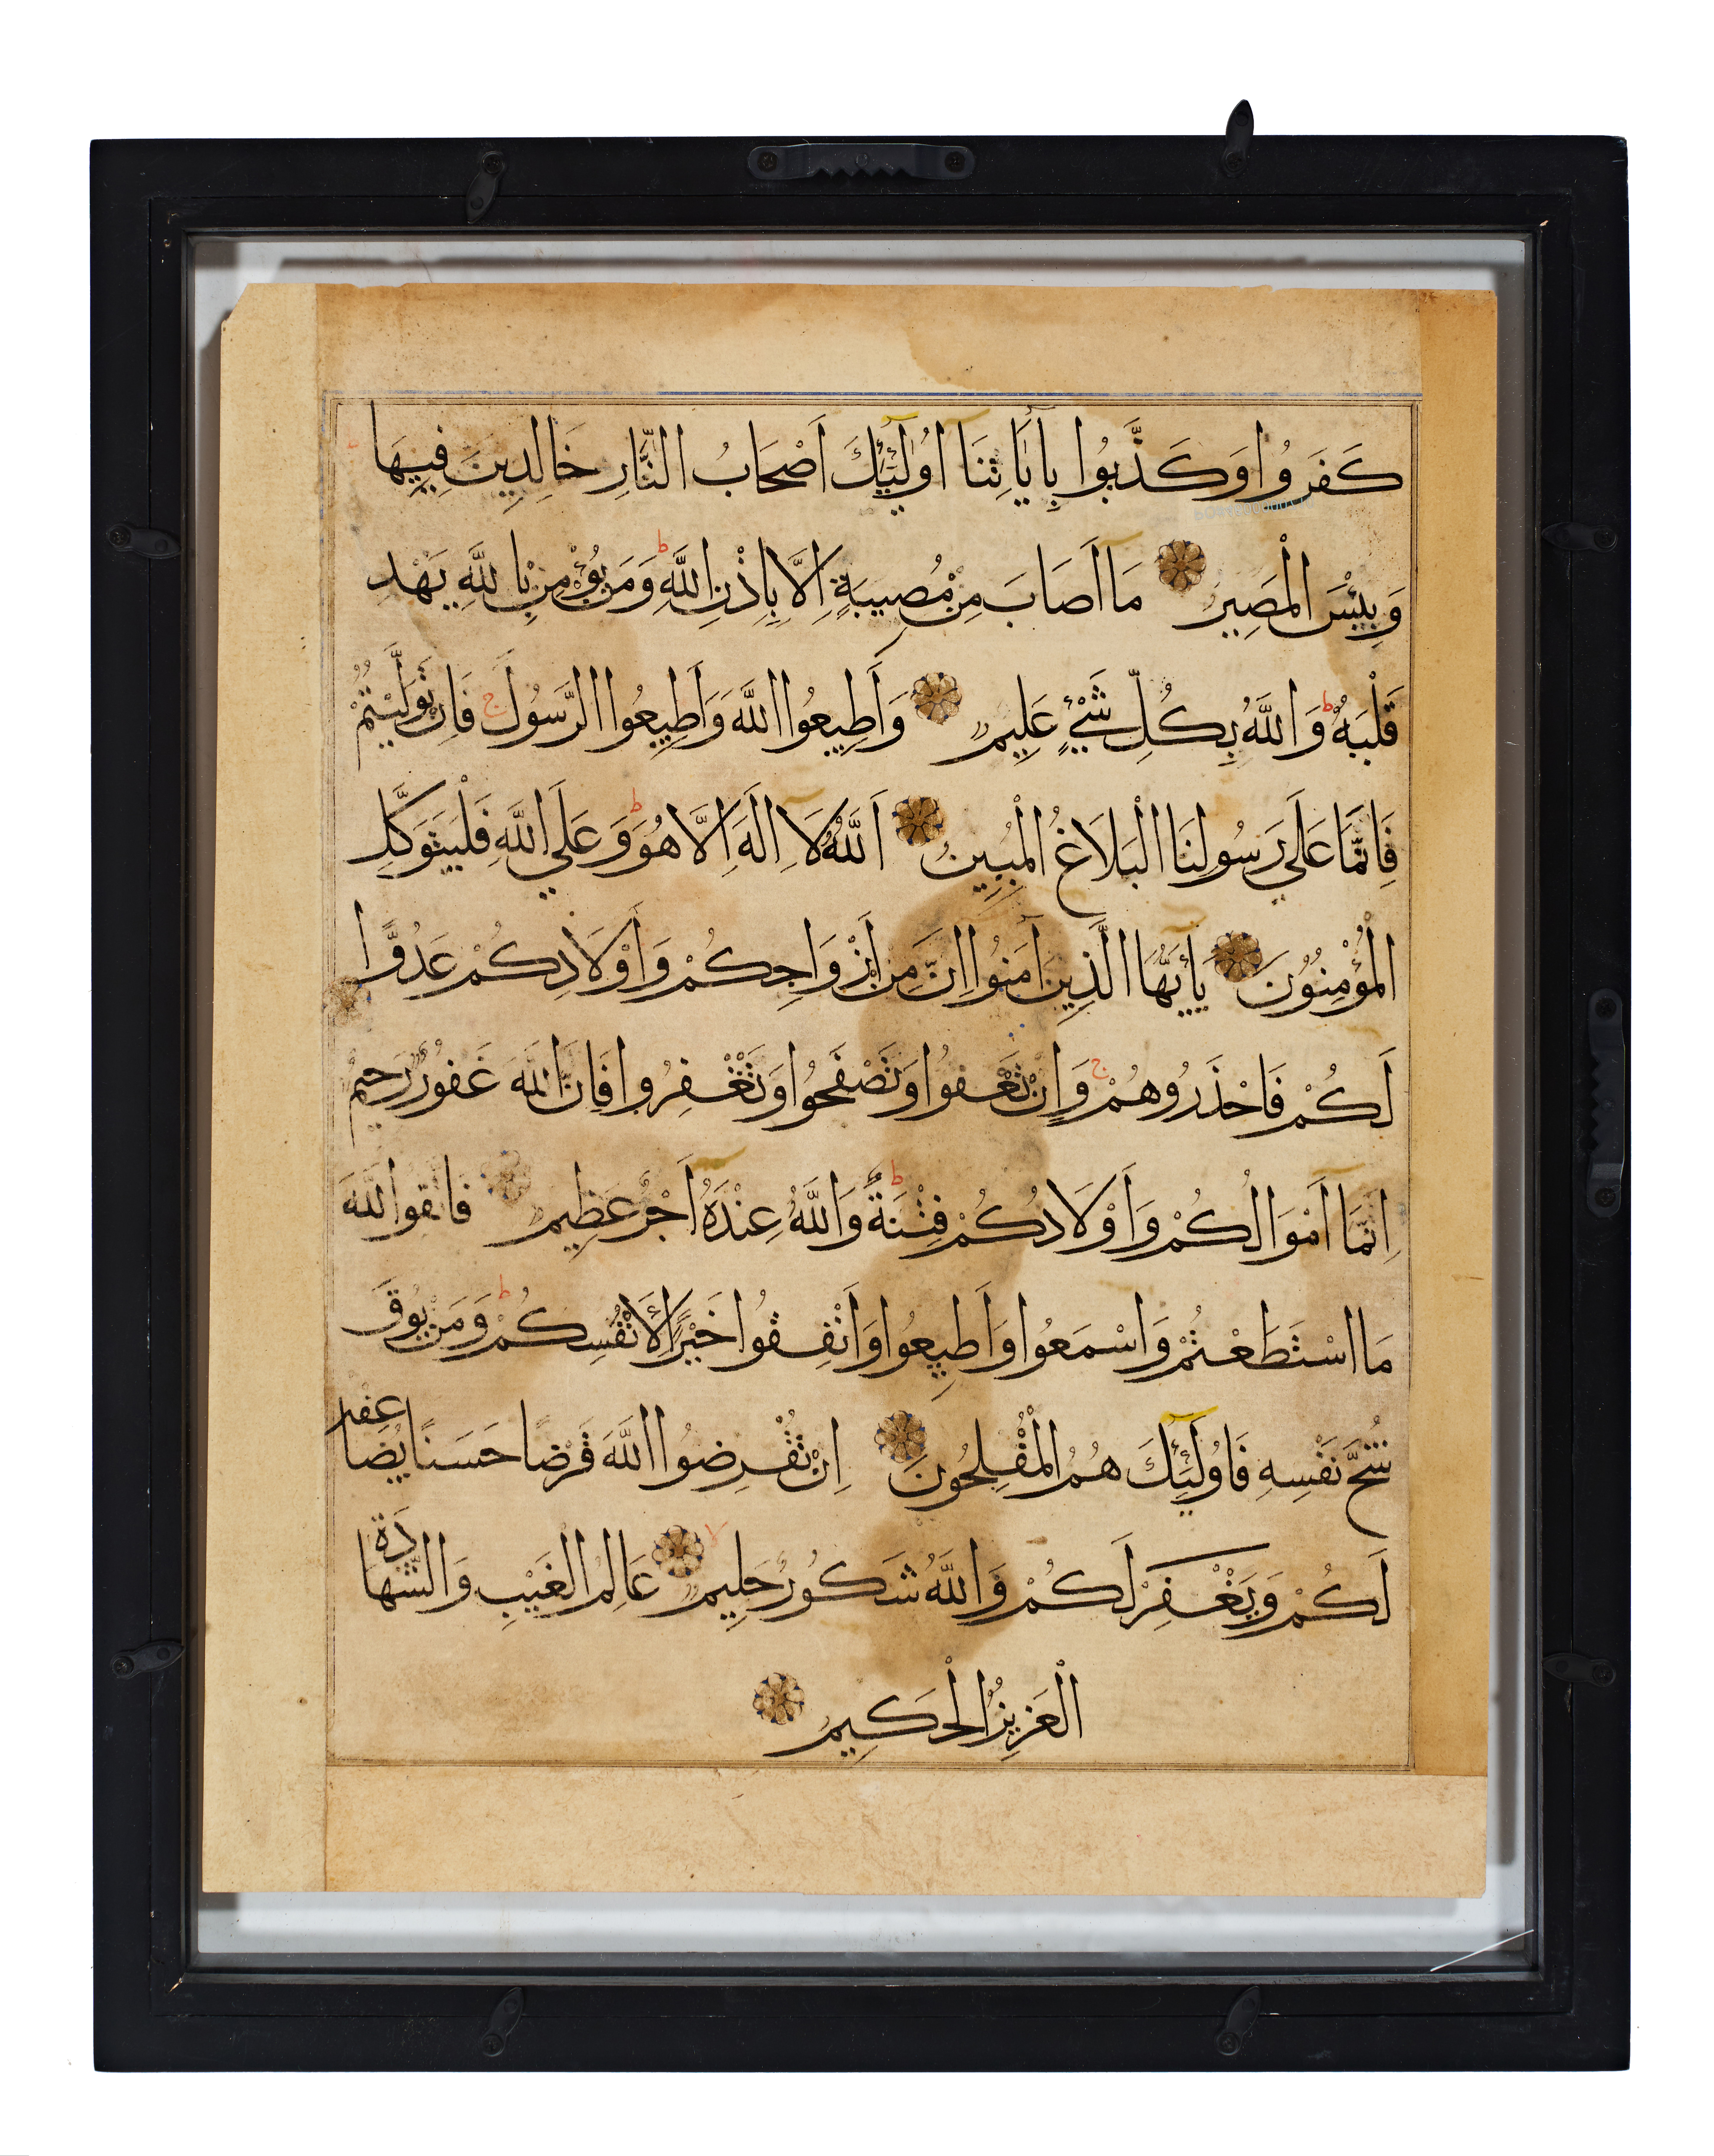 كَفَرُوا وَكَذَّبُوا بِأَيَاتِنَا اُولَٰئِكَ اَصْحَابُ النَّارِ خَالِدِينَ فِيهَا
وَبِئْسَ الْمَصِيرُ مَا اَصَابَ مِنْ مُصِيبَةٍ اِلَّا بِاِذْنِ اللَّهِ ط وَمَنْ يُؤْمِنْ بِاللَّهِ يَهْدِ
قَلْبَهُ ط وَاللَّهُ بِكُلِّ شَيْءٍ عَلِيمٌ وَأَطِيعُوا اللَّهَ وَأَطِيعُوا الرَّسُولَ ج فَاِنْ تَوَلَّيْتُمْ
فَاِنَّمَا عَلَى رَسُولِنَا الْبَلَاغُ الْمُبِينُ اَللَّهُ لَا اِلَهَ اِلَّا هُوَ ط وَعَلَى اللَّهِ فَلْيَتَوَكَّلِ
الْمُؤْمِنُونَ يَأَيُّهَا الَّذِينَ آمَنُوا اِنَّ مِنْ أَزْوَاجِكُمْ وَأَوْلَادِكُمْ عَدُوًّا
لَكُمْ فَاحْذَرُوهُمْ ج وَاِنْ تَعْفُوا وَتَصْفَحُوا وَتَغْفِرُوا فَاِنَّ اللَّهَ غَفُورٌ رَحِيمٌ
اِنَّمَا اَمْوَالُكُمْ وَأَوْلَادُكُمْ فِتْنَةٌ ط وَاللَّهُ عِنْدَهُ أَجْرٌ عَظِيمٌ فَاتَّقُوا اللَّهَ
مَا اسْتَطَعْتُمْ وَاسْمَعُوا وَاَطِيعُوا وَاَنْفِقُوا خَيْرًا لِأَنْفُسِكُمْ ط وَمَنْ يُوقَ
شُحَّ نَفْسِهِ فَاُولَئِكَ هُمُ الْمُفْلِحُونَ اِنْ تُقْرِضُوا اللَّهَ قَرْضًا حَسَنًا يُضَاعِفْهُ
لَكُمْ وَيَغْفِرْ لَكُمْ وَاللَّهُ شَكُورٌ حَلِيمٌ لا عَالِمُ الْغَيْبِ وَالشَّهَادَةِ
الْعَزِيزُ الْحَكِيمُ